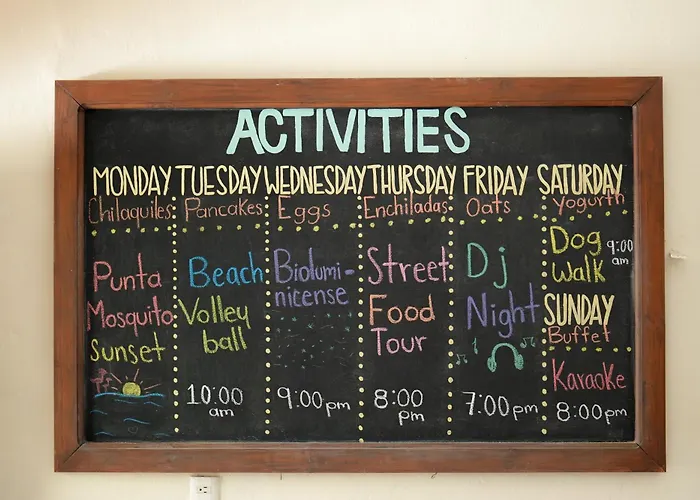 ACTIVITIES
MONDAY TUESDAY WEDNESDAY THURSDAY FRIDAY SATURDAY
Chilaquiles Pancakes Eggs Enchiladas Oats Yogurth
Punta
Mosquito
Sunset
Beach
Volley
ball
10:00
am
Biolumi-
nicense
9:00pm
Street
Food
Tour
8:00
pm
Dj
Night
7:00pm
Dog
Walk
9:00
am
SUNDAY
Buffet
Karaoke
8:00pm